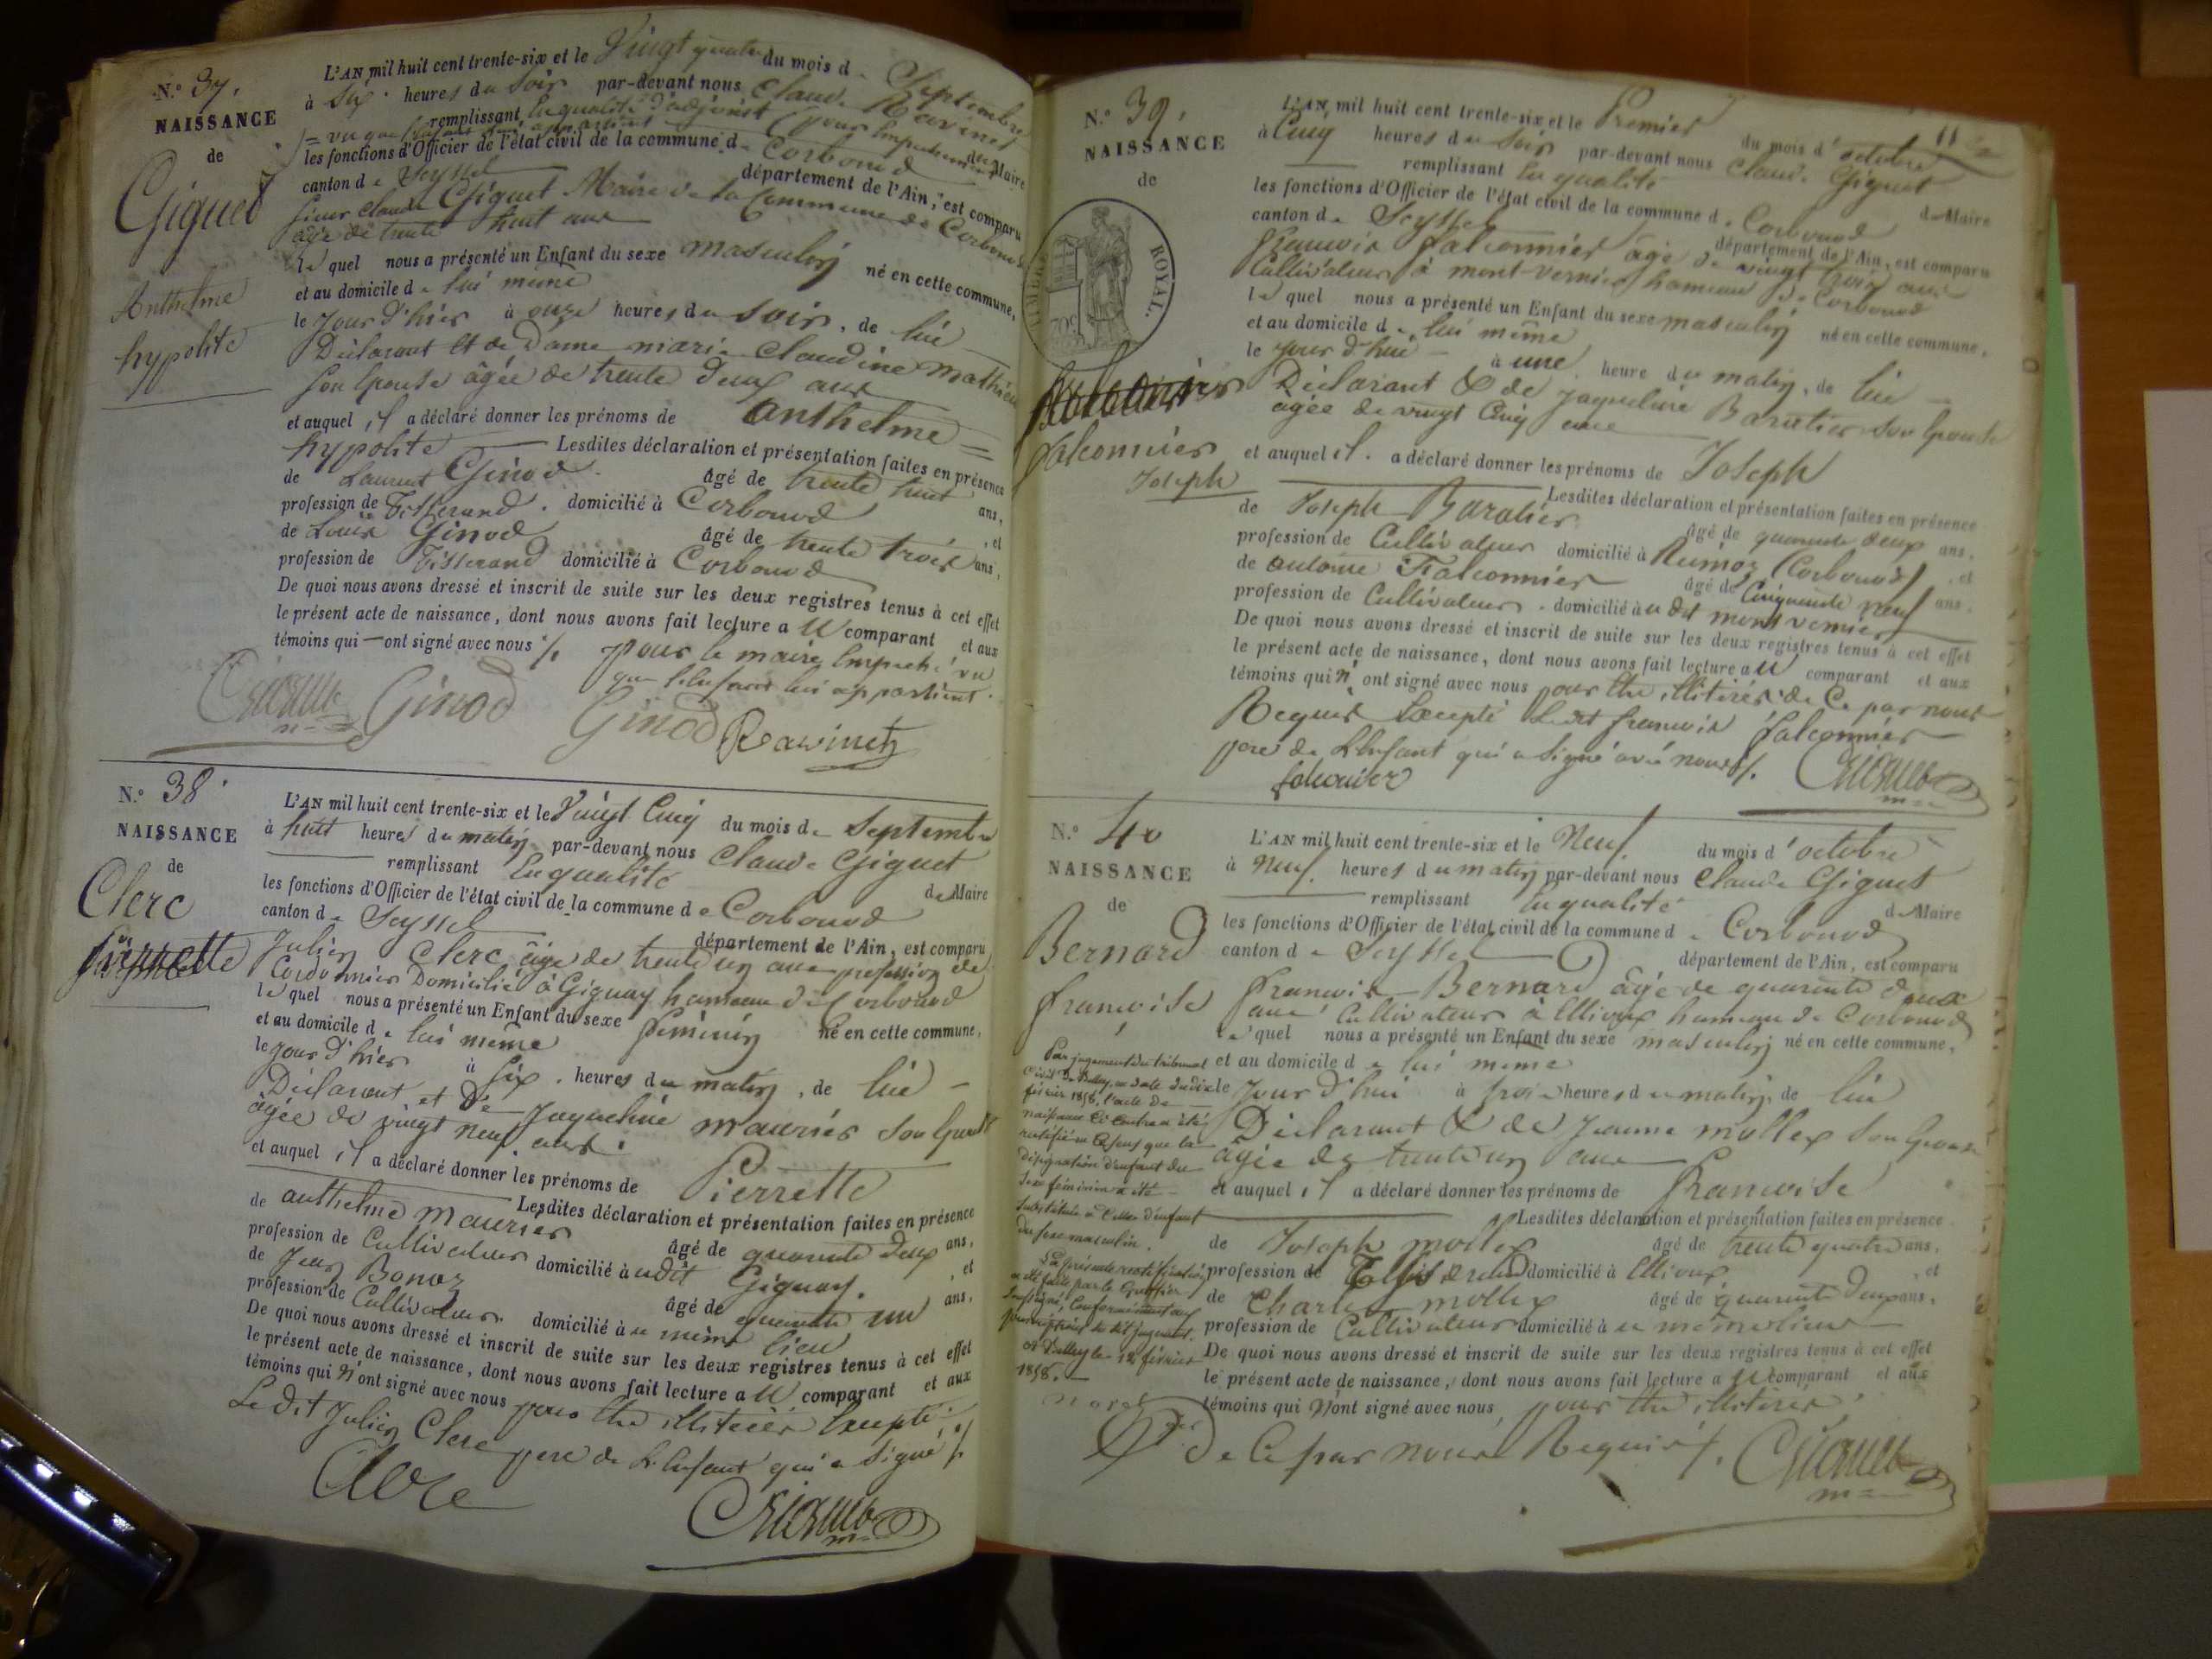 N.º 37.
NAISSANCE
de
Giguet
Anthelme
hypolite
L'AN mil huit cent trente-six et le Vingt quatre du mois de Septembre
à Six heures du Soir par-devant nous Claude Ravinet
remplissant En qualité d'adjoint (pour Empechement du Maire
= vu que l'enfant lui appartient
les fonctions d'Officier de l'état civil de la commune de Corbonod
canton de Seyssel département de l'Ain, est comparu
sieur Claude Giguet Maire de la Commune de Corbonod
âgé de trente huit ans
lequel nous a présenté un Enfant du sexe masculin né en cette commune,
et au domicile de lui même
le Jour d'hier à onze heures du soir, de lui
Déclarant et de Dame marie Claudine Mathieu
son Epouse âgée de trente deux ans
et auquel il a déclaré donner les prénoms de anthelme =
hypolite Lesdites déclaration et présentation faites en présence
de Laurent Ginod âgé de trente huit ans,
profession de Tisserand. domicilié à Corbonod , et
de Louis Ginod âgé de trente trois ans,
profession de Tisserand domicilié à Corbonod
De quoi nous avons dressé et inscrit de suite sur les deux registres tenus à cet effet
le présent acte de naissance, dont nous avons fait lecture au comparant et aux
témoins qui ont signé avec nous ./. pour le maire Empeché vu
que l'Enfant lui appartient.
Giguet
Ginod Ginod Ravinet
N.º 38
NAISSANCE
de
Clerc
Pierrette
L'AN mil huit cent trente-six et le Vingt Cinq du mois de Septembre
à huit heures du matin par-devant nous Claude Giguet
remplissant En qualité de Maire
les fonctions d'Officier de l'état civil de la commune de Corbonod
canton de Seyssel département de l'Ain, est comparu
Julien Clerc âgé de trente un ans profession de
Cordonnier Domicilié à Gignay hameau de Corbonod
lequel nous a présenté un Enfant du sexe féminin né en cette commune,
et au domicile de lui même
le Jour d'hier à six heures du matin, de lui
Déclarant et de Jaqueline maurier son Epouse
âgée de vingt neuf ans.
et auquel il a déclaré donner les prénoms de Pierrette
Lesdites déclaration et présentation faites en présence
de anthelme maurier âgé de quarante deux ans,
profession de Cultivateur domicilié à udit Gignay. , et
de Jean Bonaz âgé de quarante un ans,
profession de Cultivateur domicilié à u même lieu
De quoi nous avons dressé et inscrit de suite sur les deux registres tenus à cet effet
le présent acte de naissance, dont nous avons fait lecture au comparant et aux
témoins qui n'ont signé avec nous pour Etre illitéres Excepté
Le dit Julien Clerc pere de L'Enfant qui a signé ./.
Clerc
Giguet
N.º 39.
NAISSANCE
de
TIMBRE ROYAL.
falconnier
Joseph
L'AN mil huit cent trente-six et le Premier du mois d'octobre
à Cinq heures du Soir par-devant nous Claude Giguet
remplissant En qualité de Maire
les fonctions d'Officier de l'état civil de la commune de Corbonod
canton de Seyssel département de l'Ain, est comparu
françois falconnier âgé de vingt trois ans
Cultivateur à mont-vernier hameau de Corbonod
lequel nous a présenté un Enfant du sexe masculin né en cette commune,
et au domicile de lui même
le Jour d'hui à une heure du matin, de lui
Déclarant & de Jaqueline Baratier son Epouse
âgée de vingt Cinq ans
et auquel il a déclaré donner les prénoms de Joseph
Lesdites déclaration et présentation faites en présence
de Joseph Baratier âgé de quarante deux ans,
profession de Cultivateur domicilié à Rémoz (Corbonod) , et
de antoine Falconnier âgé de Cinquante neuf ans,
profession de Cultivateur. domicilié à u dit mont vernier
De quoi nous avons dressé et inscrit de suite sur les deux registres tenus à cet effet
le présent acte de naissance, dont nous avons fait lecture au comparant et aux
témoins qui n'ont signé avec nous pour Etre illitéres de Ce par nous
Requis Excepté Ledit françois falconnier
pere de L'Enfant qui a signé avec nous ./.
falconier
Giguet
N.º 40
NAISSANCE
de
Bernard
françoise
L'AN mil huit cent trente-six et le Neuf du mois d'octobre
à Neuf heures du matin par-devant nous Claude Giguet
remplissant En qualité de Maire
les fonctions d'Officier de l'état civil de la commune de Corbonod
canton de Seyssel département de l'Ain, est comparu
françois Bernard âgé de quarante deux
ans Cultivateur à Ellioux hameau de Corbonod
lequel nous a présenté un Enfant du sexe masculin né en cette commune,
et au domicile de lui meme
le Jour d'hui à trois heures du matin, de lui
Déclarant & de Jeanne mollex son Epouse
âgée de trente un ans
et auquel il a déclaré donner les prénoms de françoise
Lesdites déclaration et présentation faites en présence
de Joseph mollex âgé de trente quatre ans,
profession de Tisserand domicilié à Ellioux , et
de Charles mollex âgé de quarante deux ans,
profession de Cultivateur domicilié à u même lieu
De quoi nous avons dressé et inscrit de suite sur les deux registres tenus à cet effet
le présent acte de naissance, dont nous avons fait lecture au comparant et aux
témoins qui n'ont signé avec nous, pour Etre illitéres
De Ce par nous Requis ./.
Giguet
Par jugement du tribunal
civil de Belley, en date du dix
février 1858, l'acte de
naissance ci contre a été
rectifié en ce sens que la
désignation d'enfant du
sexe féminin a été
substituée à celle d'enfant
du sexe masculin.
La présente rectification
a été faite par le Greffier
soussigné, conformément aux
prescriptions du dit jugement.
A Belley le 12 février
1858.